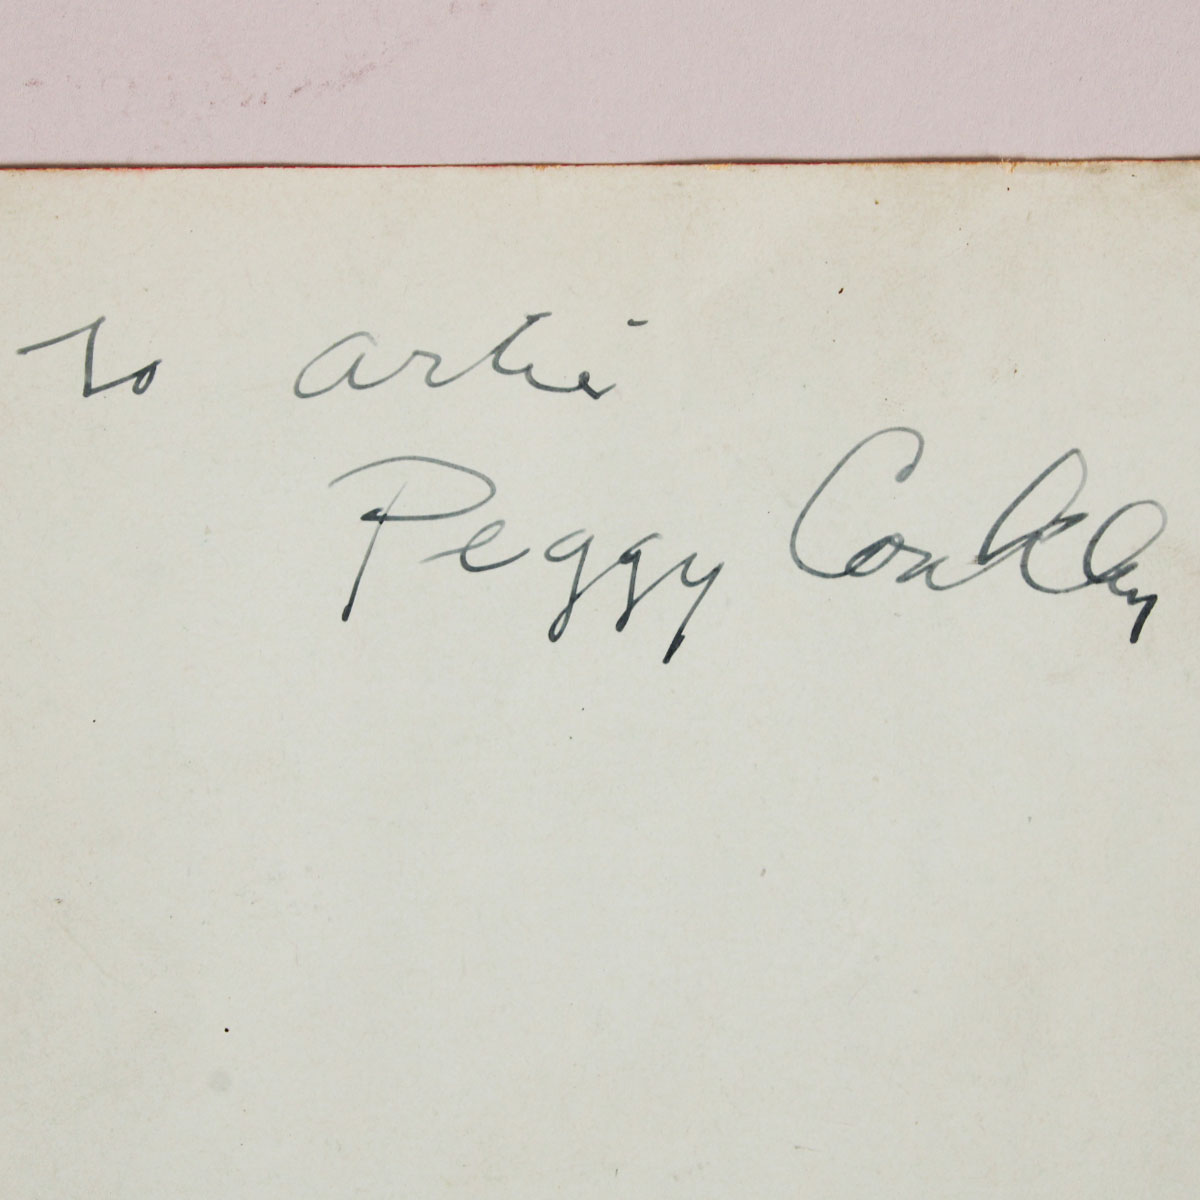 to Artie
Peggy Conkley